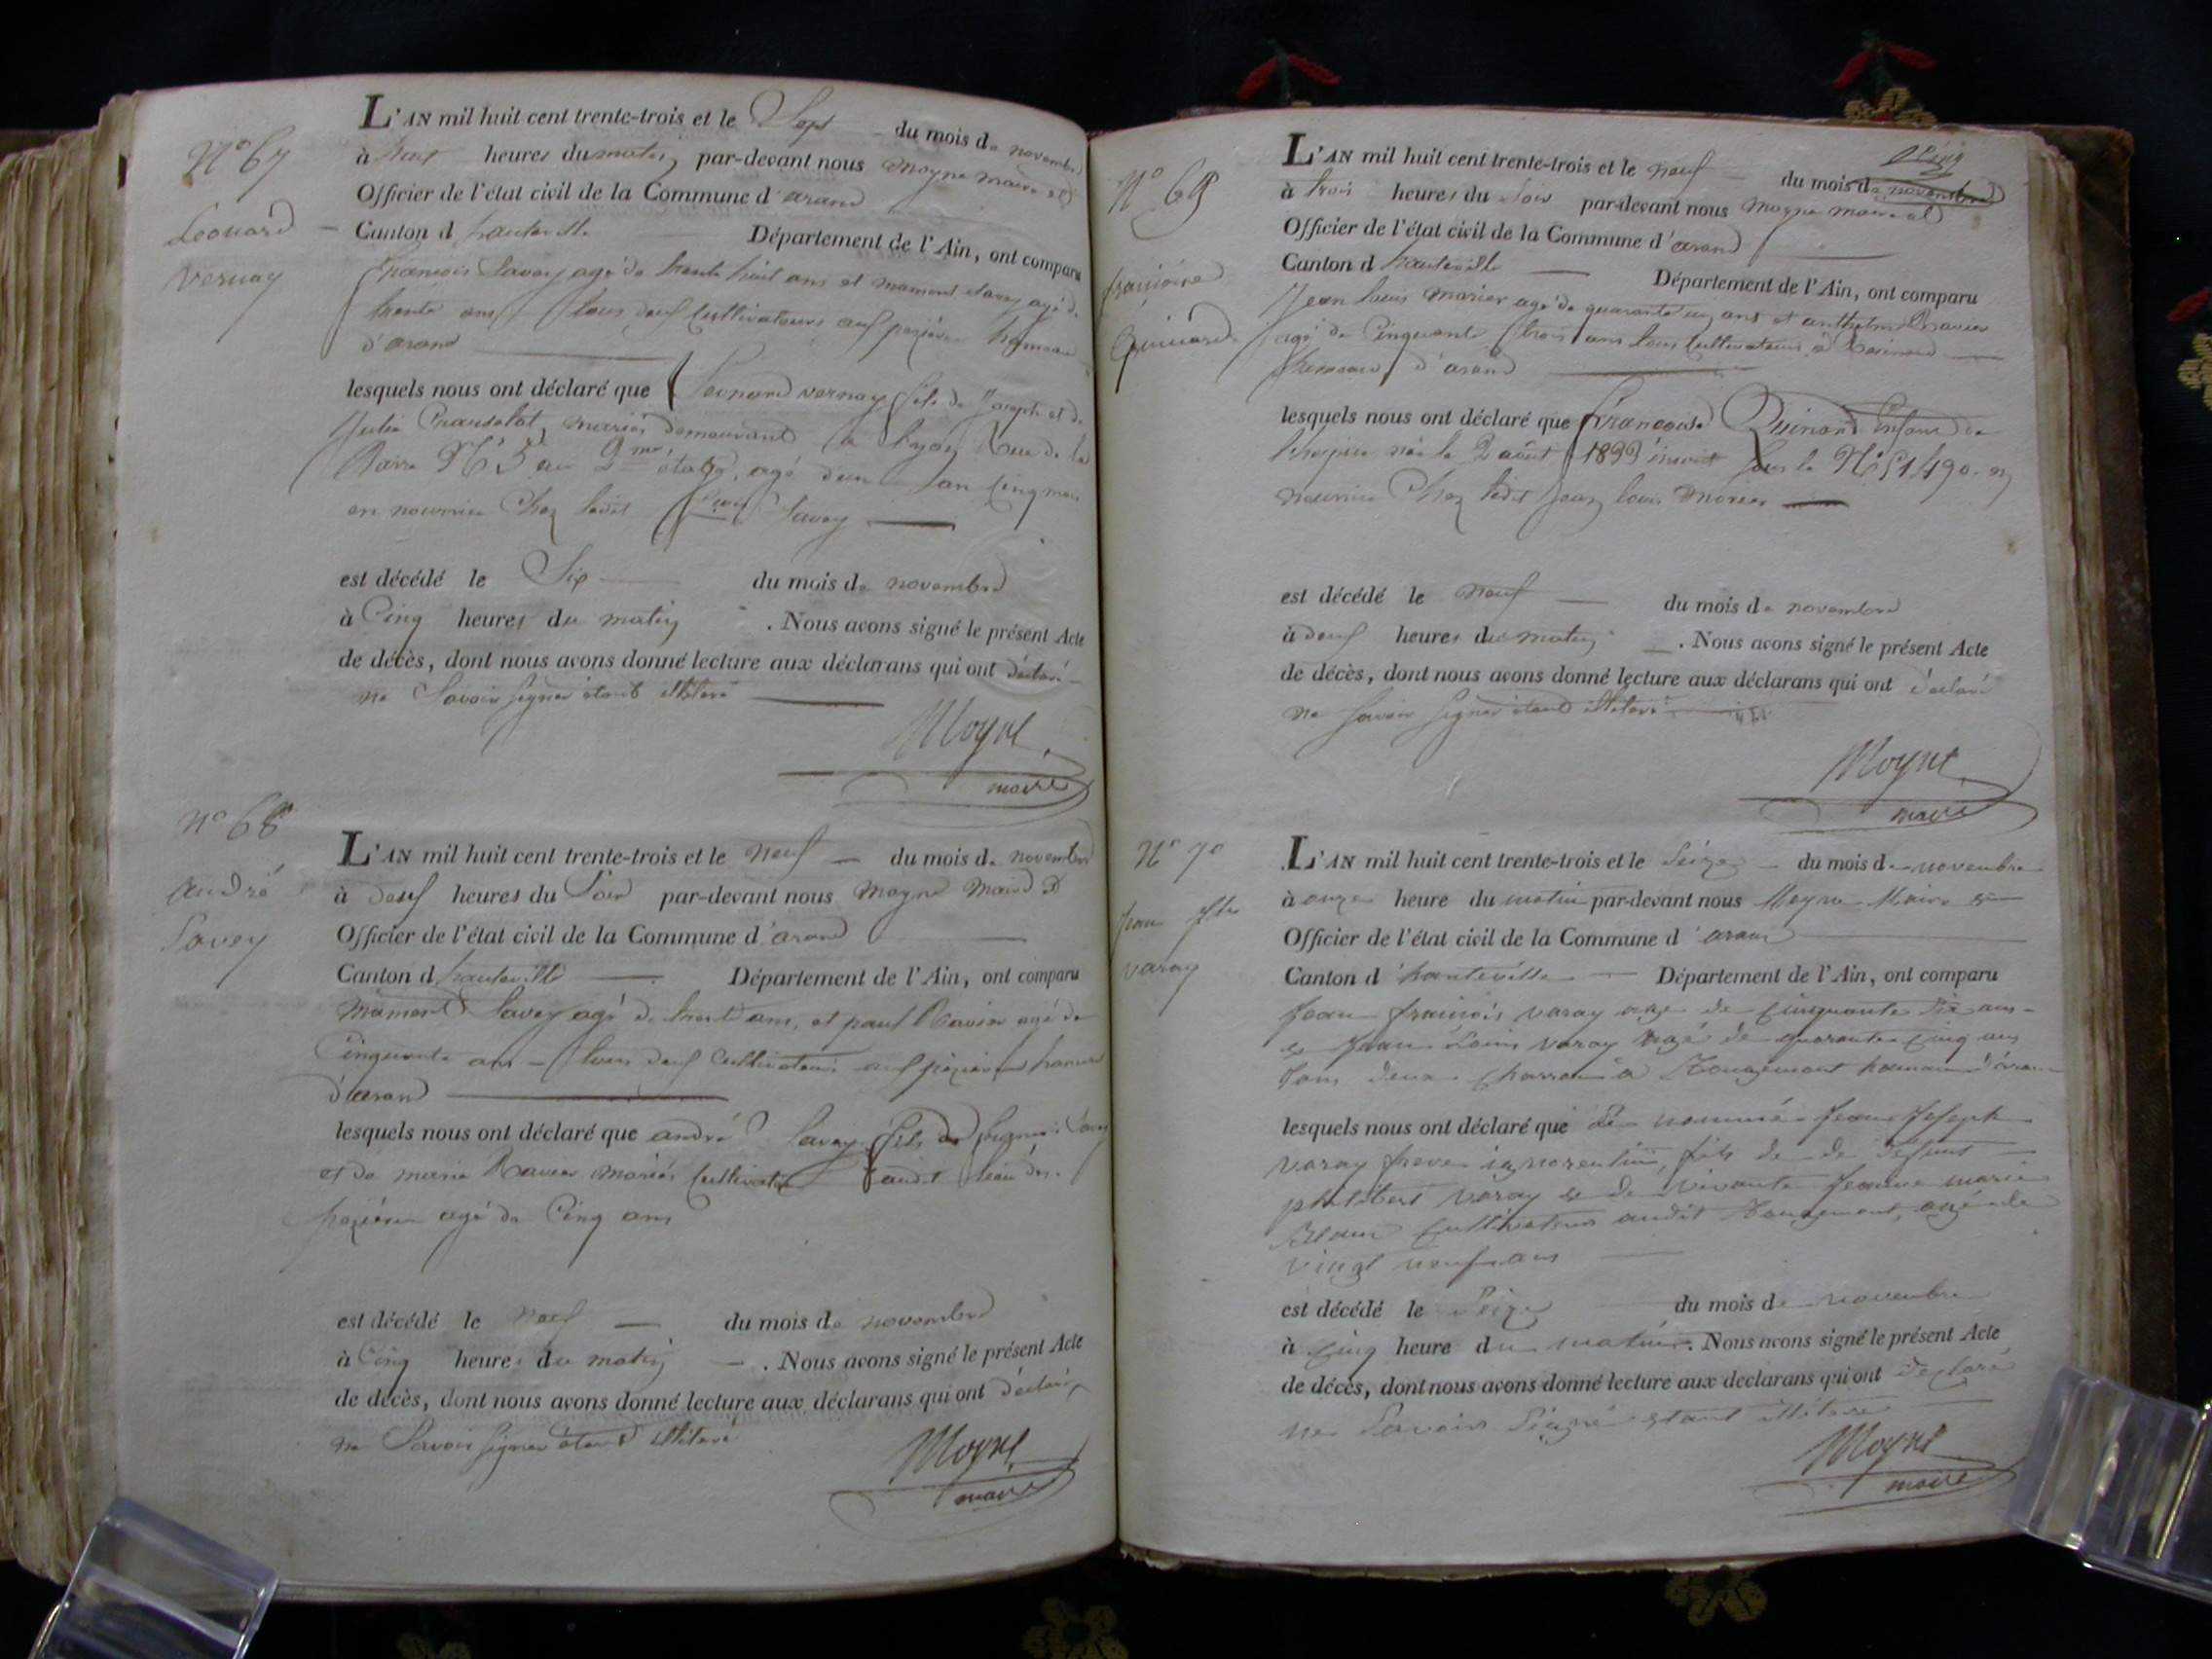 N° 67
Léonard
Vernay
L'AN mil huit cent trente-trois et le Sept du mois de novembre
à huit heures du matin par-devant nous moyne maire et
Officier de l'état civil de la Commune d'arand
Canton d hauteville Département de l'Ain, ont comparu
françois Savey agé de trente huit ans et mamert Savey agé de
trente ans tous deux Cultivateurs aux pezières hameau
d'arand
lesquels nous ont déclaré que Leonard vernay fils de Joseph et de
Julie mariés demeurant à Lyon Rue de la
N° 5 au 2me étage, agé d'un an Cinq mois
en nourrice Chez ledit Savey
est décédé le Six du mois de novembre
à Cinq heures du matin . Nous avons signé le présent Acte
de décès, dont nous avons donné lecture aux déclarans qui ont déclaré
ne Savoir signer étant illiteré
Moyne
maire
N° 68
andré
Savey
L'AN mil huit cent trente-trois et le neuf du mois de novembre
à deux heures du Soir par-devant nous moyne maire et
Officier de l'état civil de la Commune d'arand
Canton d hauteville Département de l'Ain, ont comparu
mamert Savey agé de trente ans, et paul Ravier agé de
Cinquante ans tous deux Cultivateurs aux pezières hameau
d'arand
lesquels nous ont déclaré que andré Savey fils de Savey
et de marie Ravier mariés Cultivateurs audit lieu des
pezières agé de Cinq ans
est décédé le neuf du mois de novembre
à Cinq heures du matin . Nous avons signé le présent Acte
de décès, dont nous avons donné lecture aux déclarans qui ont déclaré
ne Savoir signer étant illiteré
Moyne
maire
N° 69
françoise
Quinard
L'AN mil huit cent trente-trois et le neuf du mois de novembre
à trois heures du Soir par-devant nous moyne maire et
Officier de l'état civil de la Commune d'arand
Canton d hauteville Département de l'Ain, ont comparu
Jean louis morier agé de quarante un ans et anthelme Ravier
agé de Cinquante trois ans tous Cultivateurs à
hameau d'arand
lesquels nous ont déclaré que françoise Quinard Enfant de
l'hospice née le 2 août 1833 inscrit sous le N° 51490. en
nourrice Chez ledit Jean louis morier
est décédé le neuf du mois de novembre
à deux heures du matin . Nous avons signé le présent Acte
de décès, dont nous avons donné lecture aux déclarans qui ont déclaré
ne Savoir signer étant illiteré
Moyne
maire
N° 70
jean jph
varay
L'AN mil huit cent trente-trois et le Seize du mois de novembre
à onze heure du matin par-devant nous Moyne Maire &
Officier de l'état civil de la Commune d'aran
Canton d'hauteville Département de l'Ain, ont comparu
Jean françois varay age de Cinquante Six ans
& Jean Louis varay agé de quarante Cinq ans
tous deux Charron à Rougemont hameau d'aran
lesquels nous ont déclaré que Le nommé Jean Joseph
varay frere ignorentin, fils de de defunt
philibert varay & de vivante Jeanne marie
Cultivateurs audit Rougemont, agé de
vingt neuf ans
est décédé le Seize du mois de novembre
à Cinq heure du matin. Nous avons signé le présent Acte
de décès, dont nous avons donné lecture aux déclarans qui ont declaré
ne Savoir Signé etant illiteré
Moyne
maire